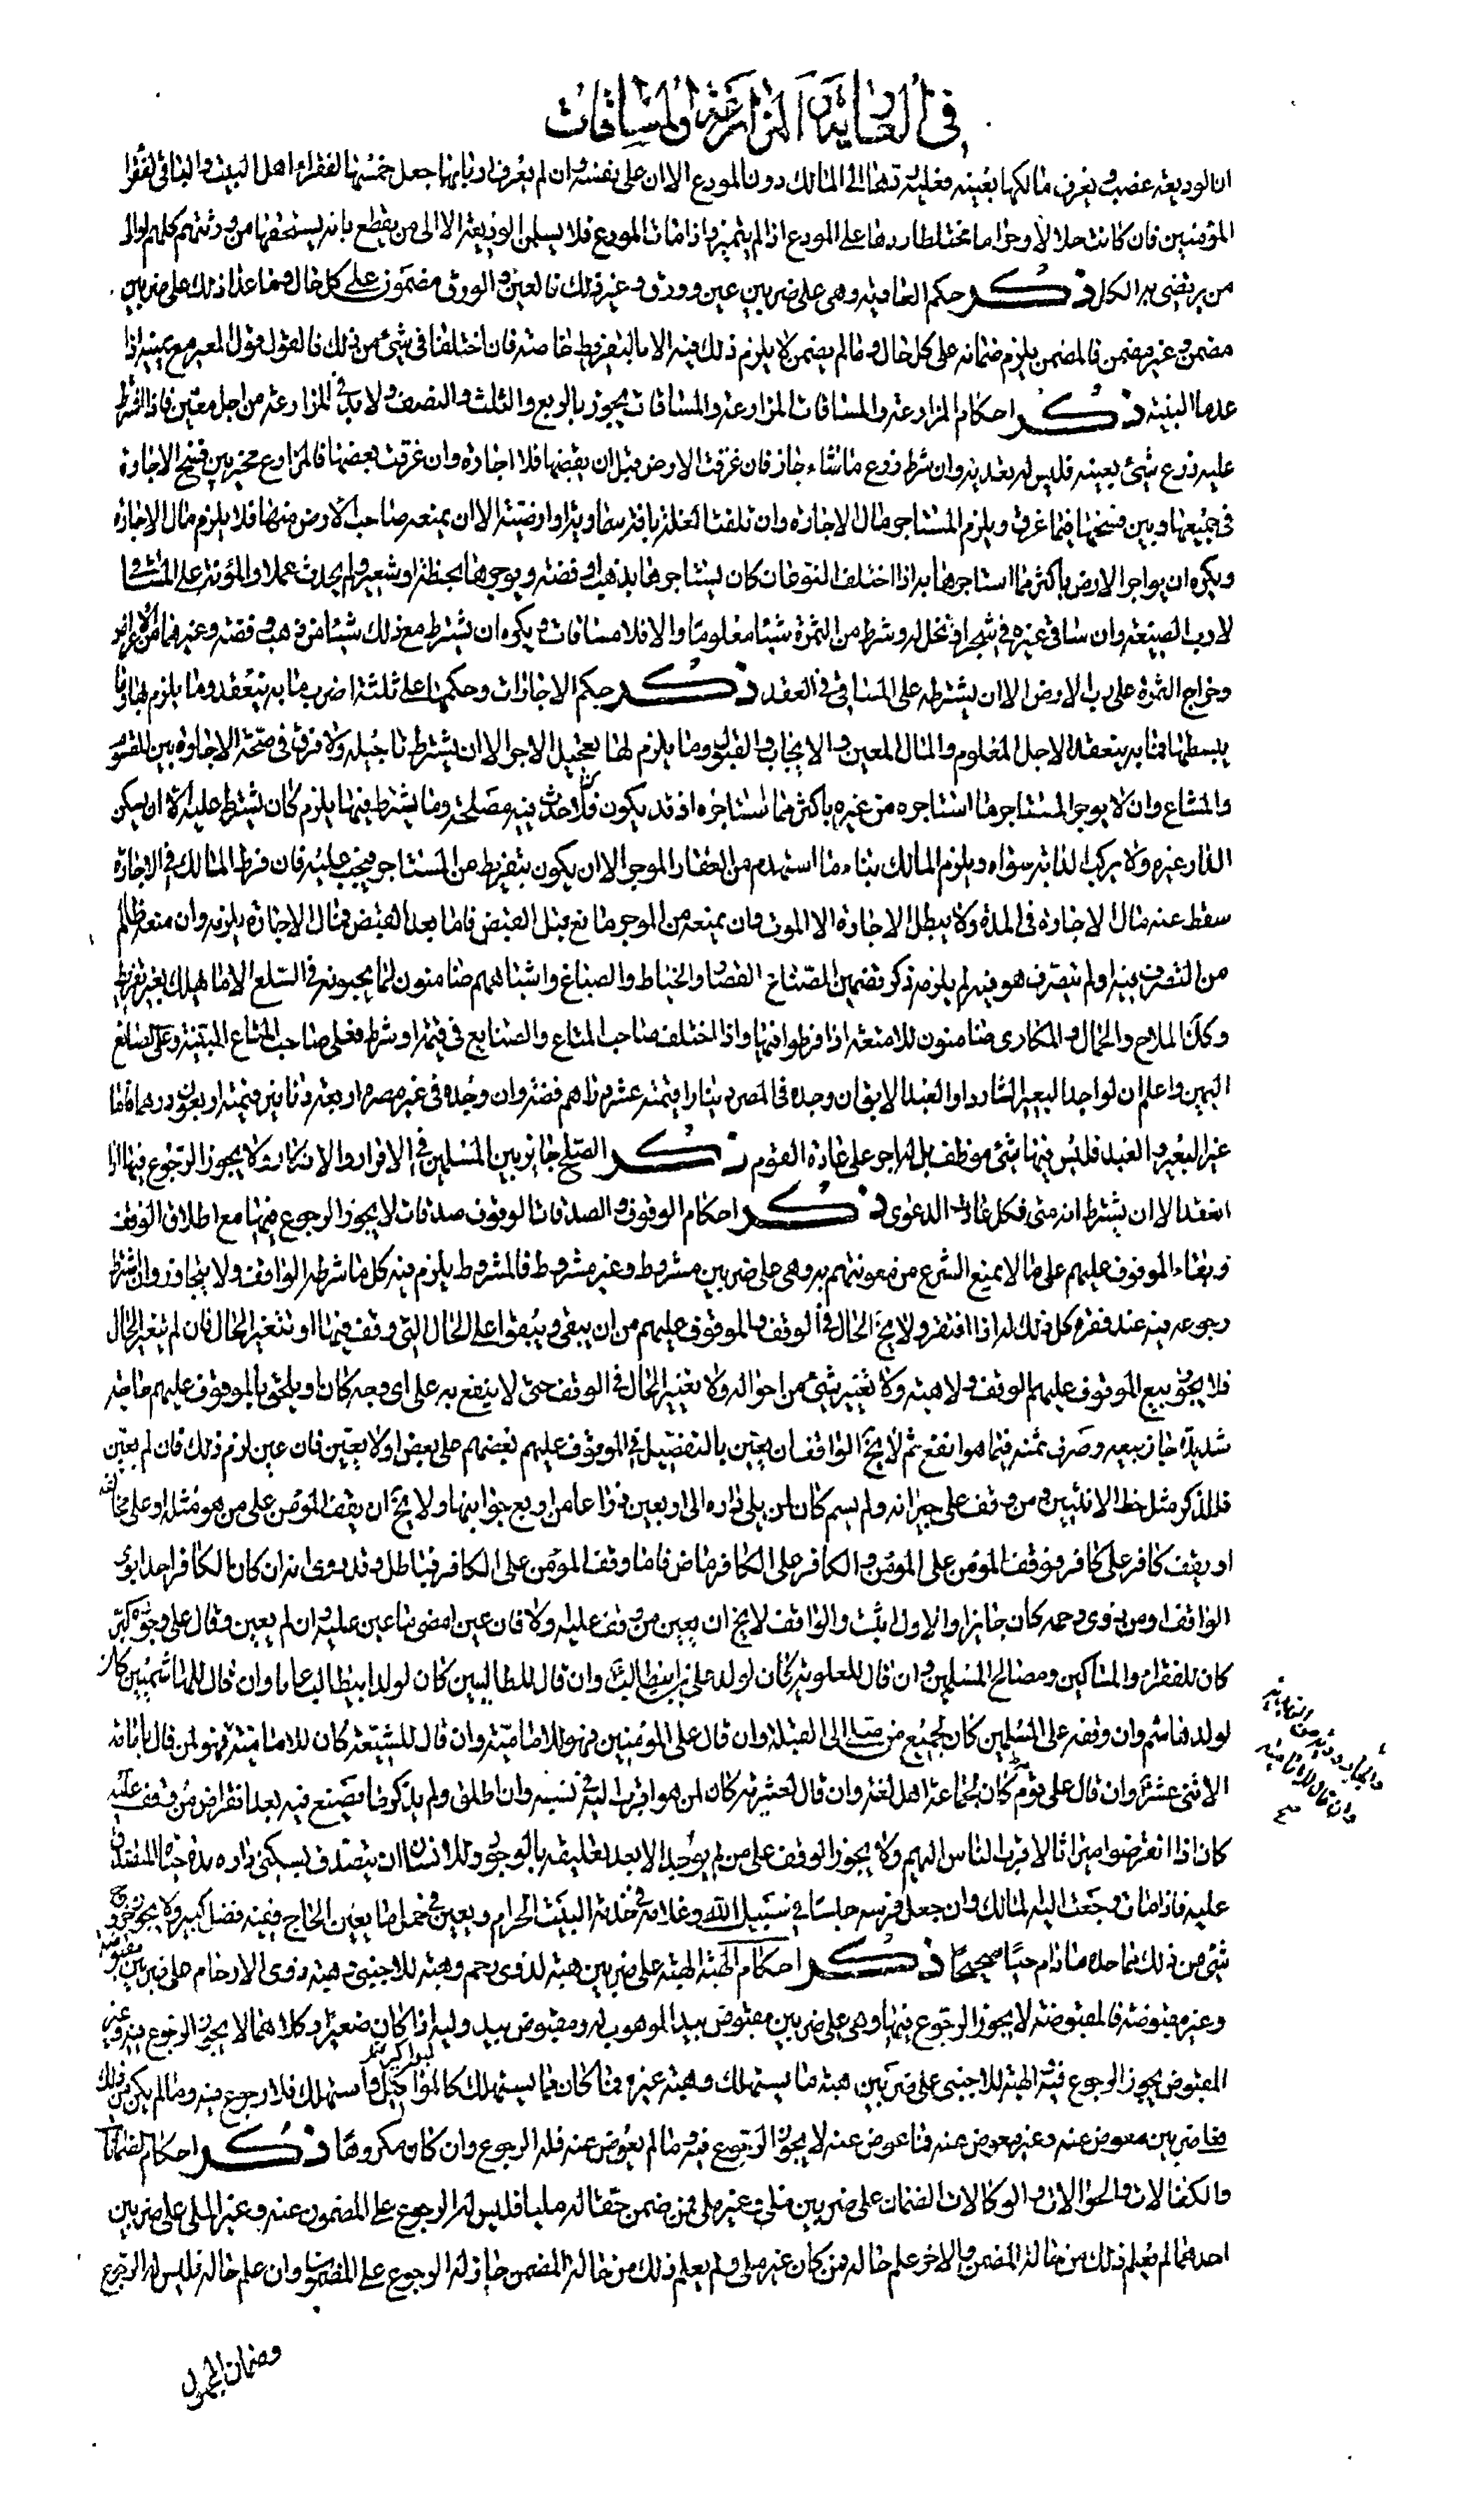 في العارية المزارعة والمساقات
ان الوديعة غصب ويعرف مالكها بعينه فعليه ردها الى المالك دون المودع الا ان على نفسه وان لم يعرف اربابها جعل خمسها لفقراء اهل البيت والباقي لفقراء
المؤمنين فان كانت حلالا وحراما مختلطا ردها على المودع اذا لم يتميز واذا مات المودع فلا يسلمن الوديعة الا الى من يقطع بانه يستحقها من ورثتهم كلهم او الى
من يرتضي به الكل ذكر حكم العارية وهي على ضربين عين وورق وغير ذلك فالعين والورق مضمون على كل حال وما عدا ذلك على ضربين
مضمن وغير مضمن فالمضمن يلزم ضمانه على كل حال وما لم يضمن لا يلزم ذلك فيه الا بالتفريط خاصة فان اختلفا في شئ من ذلك فالقول قول المعير مع يمينه اذا
عدما البينة ذكر احكام المزارعة والمساقات المزارعة والمساقات يجوز بالربع والثلث والنصف ولا بد في المزارعة من اجل معين فاذا اشترط
عليه زرع شئ بعينه فليس له تعديه وان شرط زرع ما شاء جاز فان غرقت الارض قبل ان يقبضها فلا اجارة وان غرقت بعضها فالمزارع مخير بين فسخ الاجارة
في جميعها وبين فسخها فيما غرق ويلزم المستاجر مال الاجارة وان تلفت الغلة بافة سماوية او ارضية الا ان يمنعه صاحب الارض منها فلا يلزم مال الاجارة
ويكره ان يواجر الارض باكثر مما استاجرها به اذا اختلف النوعان كان يستاجرها بذهب وفضة ويوجرها بحنطة وشعير ولم يحدث عملا والمؤنة على المساقي
لا رب الضيعة وان ساقى غيره في شجر او نخل له وشرط من الثمرة شيئا معلوما والا فلا مساقات ويكره ان يشترط مع ذلك شيئا من ذهب وفضة وغيرهما من الاعراض
وخراج الثمرة على رب الارض الا ان يشترطه على المساقي في العقد ذكر حكم الاجارات وحكمها على ثلثة اضرب ما به ينعقد وما يلزم بها وما
يبطلها فما به ينعقد الاجل المعلوم والمال المعين والايجاب والقبول وما يلزم لها تعجيل الاجر الا ان يشترط تاجيله ولا فرق في صحة الاجارة بين المقسوم
والمشاع وان لا يوجر المستاجر ما استاجره من غيره باكثر مما استاجره اذ قد يكون قد احدث فيه مصلحة وما يشترط فيها يلزم كان يشترط عليه الا ان يسكن
الدار غيره ولا يركب الدابة سواه ويلزم المالك بناء ما استهدم من العقار الموجر الا ان يكون بتفريط من المستاجر فيجب عليه فان فرط المالك في الاجارة
سقط عنه مال الاجارة في المدة ولا يبطل الاجارة الا الموت وان يمنعه من الموجر مانع قبل القبض فاما بعد القبض فمال الاجارة يلزمه وان منعه ظالم
من التصرف فيه او لم يتصرف هو فيه لم يلزمه ذكر تضمين الصناع القصار والخياط والصباغ واشباههم ضامنون لما يجنونه في السلع الا ما هلك بغير تفريط
وكذا الملاح والحمال والمكاري ضامنون للامتعة اذا فرطوا فيها واذا اختلف صاحب المتاع والصانع في قيمة او شرط فعلى صاحب المتاع البينة وعلى الصانع
اليمين واعلم ان لواجد البعير الشارد او العبد الابق ان وجده في المصر دينارا قيمته عشرة دراهم فضة وان وجده في غير مصره اربعة دنانير قيمته اربعون درهما فاما
غير البعير والعبد فليس فيها شئ موظف بل له اجر على عادة القوم ذكر الصلح جايز بين المسلمين في الاقرار والانكار ولا يجوز الرجوع فيها اذا
انعقد الا ان يشترط انه متى نكل عادت الدعوى ذكر احكام الوقوف والصدقات الوقوف صدقات لا يجوز الرجوع فيها مع اطلاق الوقف
وبقاء الموقوف عليهم على ما لا يمنع الشرع من معونتهم به وهي على ضربين مشروط وغير مشروط فالمشروط يلزم فيه كل ما شرطه الواقف ولا يتجاوز وان شرط
رجوعه فيه عند فقره كل ذلك له اذا افتقر ولا يخ الحال في الوقف والموقوف عليهم من ان يبقى ويبقوا على الحال التي وقف فيها او تتغير الحال فان لم تغير الحال
فلا يجوز بيع الموقوف عليهم الوقف ولا هبته ولا تغيير شئ من احواله ولا بتغير الحال في الوقف حتى لا ينتفع به على اي وجه كان او يلحق بالموقوف عليهم حاجة
شديدة جاز بيعه وصرف ثمنه فيما هو انفع ثم لا يخ الواقف ان يعين بالتفضيل في الموقوف عليهم بعضهم على بعض او لا يعين فان عين لزم ذلك فان لم يعين
فللذكر مثل حظ الانثيين ومن وقف على جيرانه ولم يسم كان لمن يلي داره الى اربعين ذراعا من اربع جوانبها ولا يخ ان يقف المؤمن على من هو مثله او على مخالفه
او يقف كافر على كافر فوقف المؤمن على المؤمن والكافر على الكافر ماض فاما وقف المؤمن على الكافر فباطل وقد روى انه ان كان الكافر احد ابوي
الواقف او من ذوي رحمه كان جايزا والاول اثبت والواقف لا يخ ان يعين من وقف عليه ولا فان عين امضى ما عين عليه وان لم يعين وقال على وجوه البر
كان للفقراء والمساكين ومصالح المسلمين وان قال للعلوية كان لولد علي بن ابيطالب وان قال للطالبيين كان لولد ابيطالب عاما وان قال للهاشميين كان
لولد هاشم وان وقفه على المسلمين كان لجميع من صلى الى القبلة وان قال على المؤمنين فهو للامامية وان قال للشيعة كان للامامية فهو لمن قال بامامة
الاثنى عشر وان قال على قوم كان لجماعة اهل لغته وان قال لعشيرته كان لمن هو اقرب اليه في نسبه وان اطلق ولم يذكر ما يصنع فيه بعد انقراض من وقف عليه
كان اذا انقرضوا ميراثا لاقرب الناس اليهم ولا يجوز الوقف على من لم يوجد الا بعد تعليقه بالوجود وللانسان ان يتصدق بسكنى داره مدة حياة المتصدق
عليه فاذا مات رجعت اليه المالك وان جعل فرسه حابسا في سبيل الله وغلامه في خدمة البيت الحرام وبعيره في حمل ما يعين الحاج ففيه فضل كبير ولا يجوز خروج
شئ من ذلك عما حده ما دام حيا صحيحا ذكر احكام الهبة الهبة على ضربين هبة لذوي رحم وهبة للاجنبي فهبة ذوي الارحام على ضربين مقبوضة
وغير مقبوضة فالمقبوضة لا يجوز الرجوع فيها وهي على ضربين مقبوض بيد الموهوب له ومقبوض بيد وليه اذا كان صغيرا وكلاهما لا يجوز الرجوع فيه وغير
المقبوض يجوز الرجوع فيه والهبة للاجنبي على ضربين هبة ما يستهلك وهبة غيره فما كان مما يستهلك كالمواكيل واستهلك فلا رجوع فيه وما لم يكن من ذلك
فعلى ضربين معوض عنه وغير معوض عنه فما عوض عنه لا يجوز الرجوع فيه وما لم يعوض عنه فله الرجوع وان كان مكروها ذكر احكام الضمانات
والكفالات والحوالات والوكالات الضمان على ضربين ملي وغير ملي فمن ضمن حقا له مليا فليس له الرجوع على المضمون عنه وغير الملي على ضربين
احدهما لم يعلم ذلك من حاله المضمن والاخر علم حاله فمن كان غير ملي ولم يعلم ذلك من حاله المضمن جاز له الرجوع على المضمون وان علم حاله فليس له الرجوع
وضمان المجهول